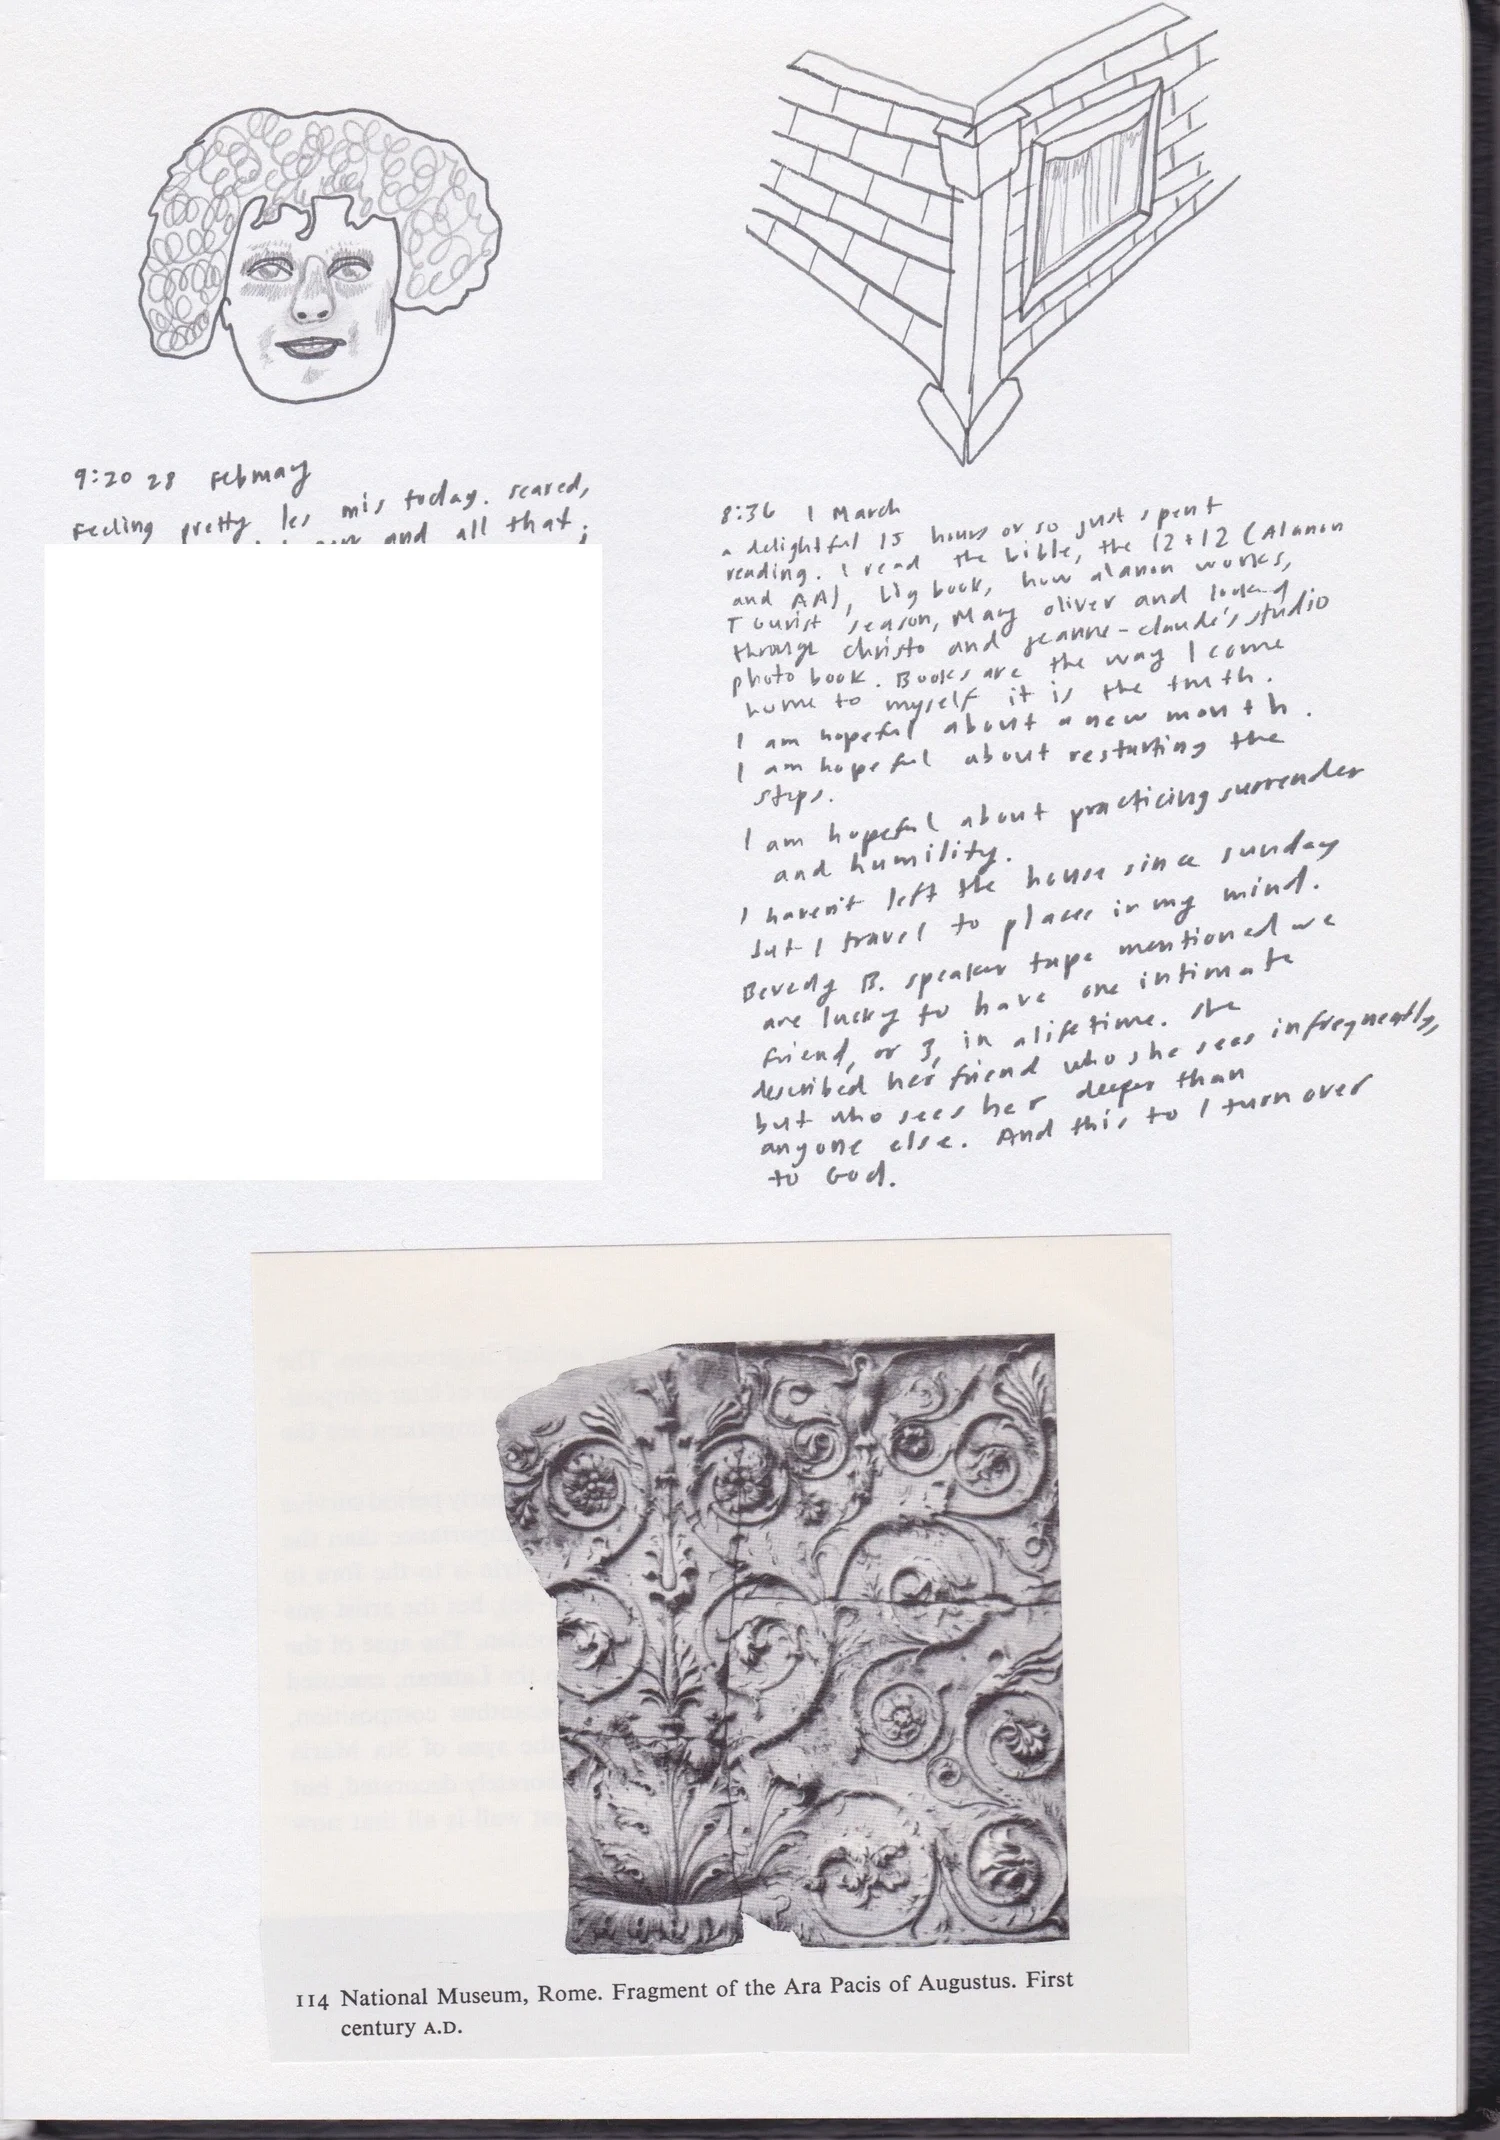 9:20 28 February
Feeling pretty les mis today. scared,
and all that,
8:36 1 March
a delightful 15 hours or so just spent
reading. I read the bible, the 12+12 (Alanon
and AA), big book, how alanon works,
Tourist season, Mary oliver and looked
through christo and jeanne-claude's studio
photo book. Books are the way I come
home to myself it is the truth.
I am hopeful about a new month.
I am hopeful about restarting the
steps.
I am hopeful about practicing surrender
and humility.
I haven't left the house since sunday
but I travel to places in my mind.
Beverly B. speaker tape mentioned we
are lucky to have one intimate
friend, or 3, in a lifetime. she
described her friend who she sees infrequently,
but who sees her deeper than
anyone else. And this to I turn over
to God.
114 National Museum, Rome. Fragment of the Ara Pacis of Augustus. First
century A.D.